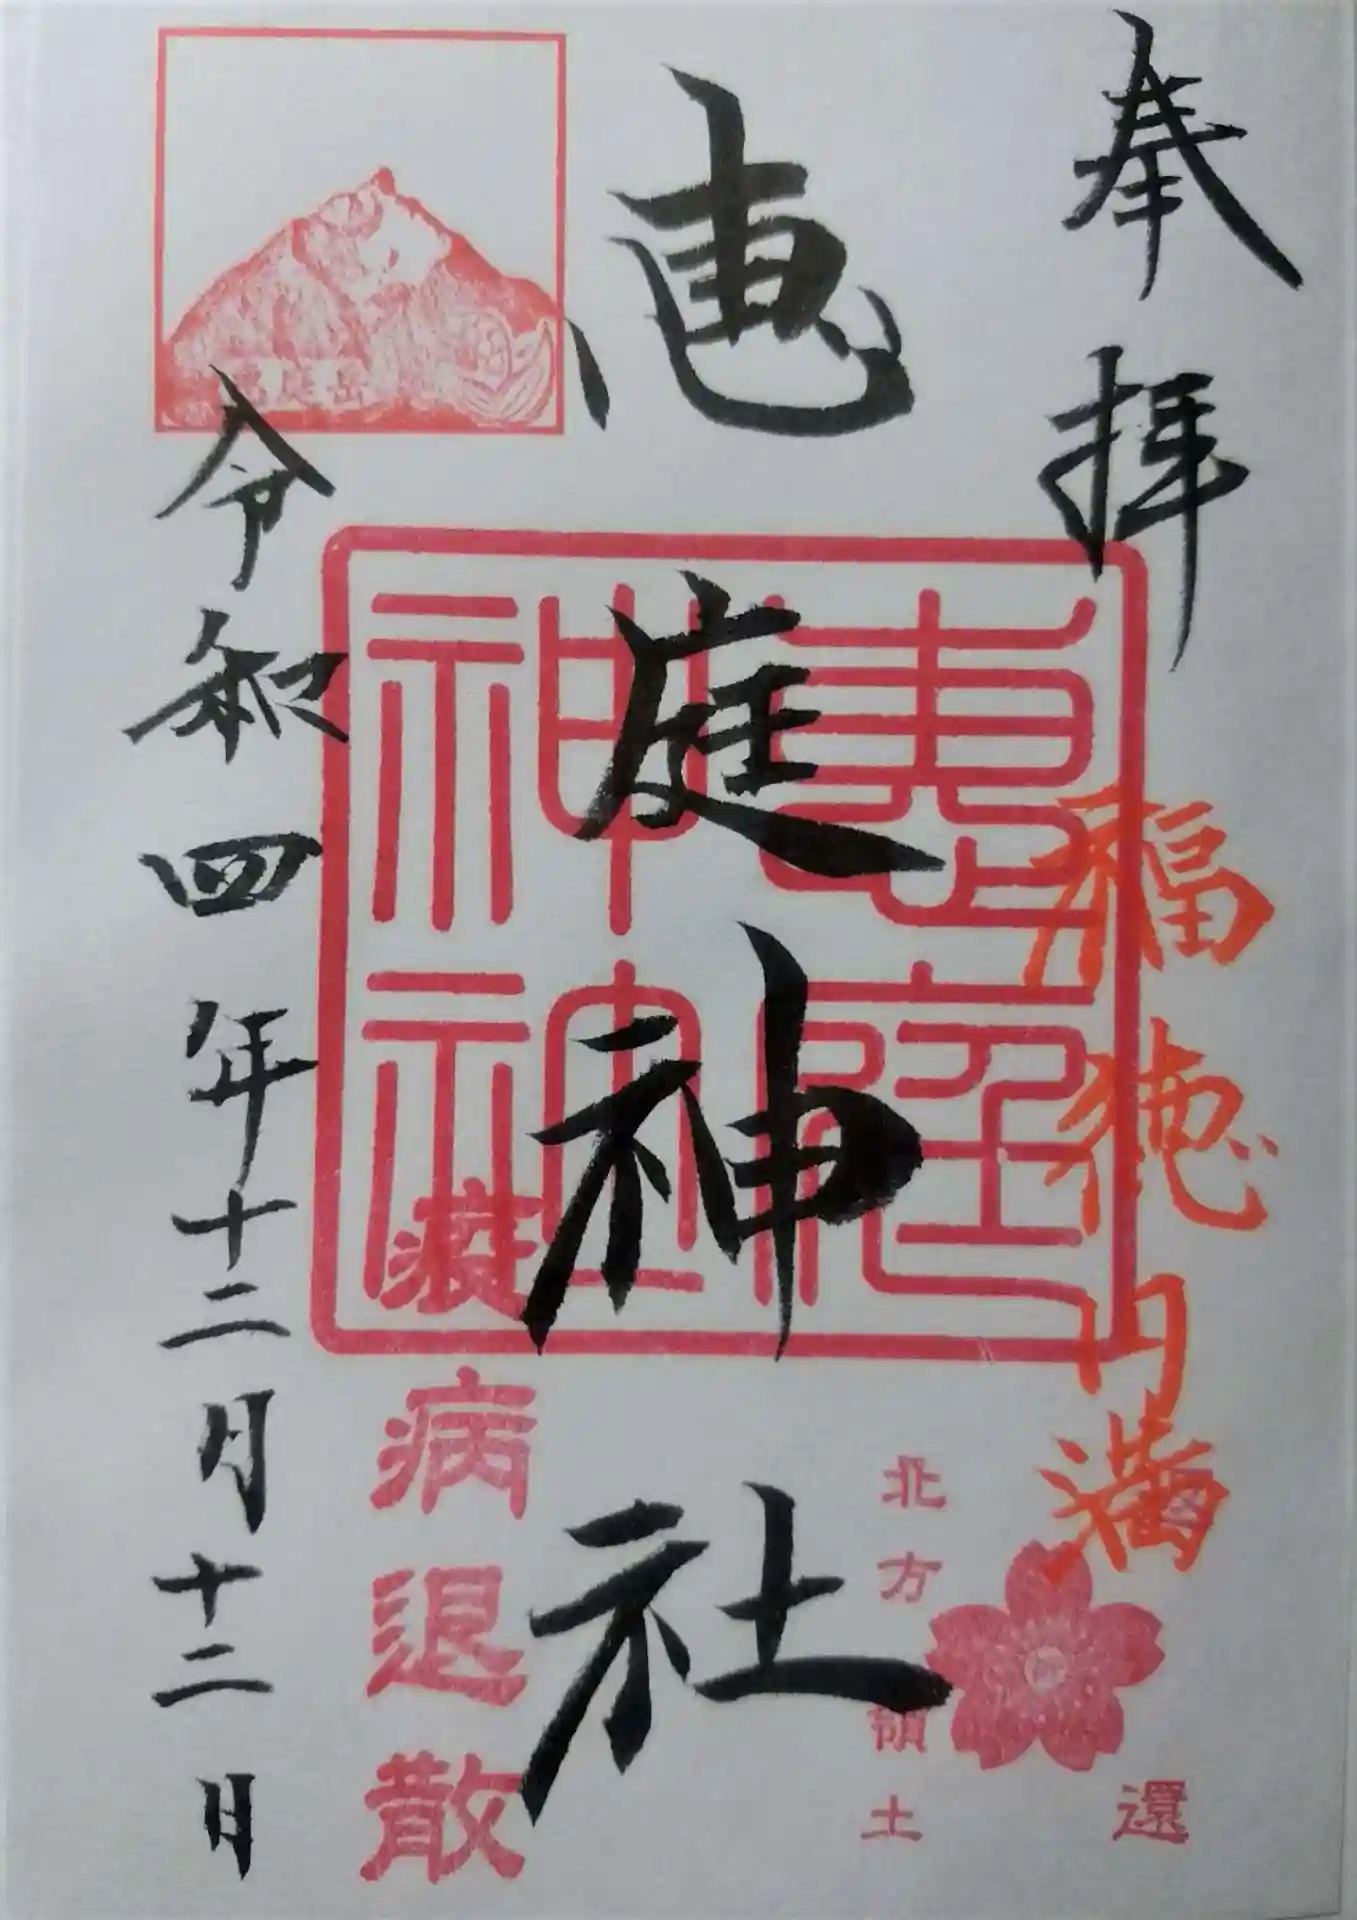 奉拝
福徳円満
還
北方領土
恵庭神社
恵庭神社
疫病退散
恵庭岳
令和四年十二月十二日